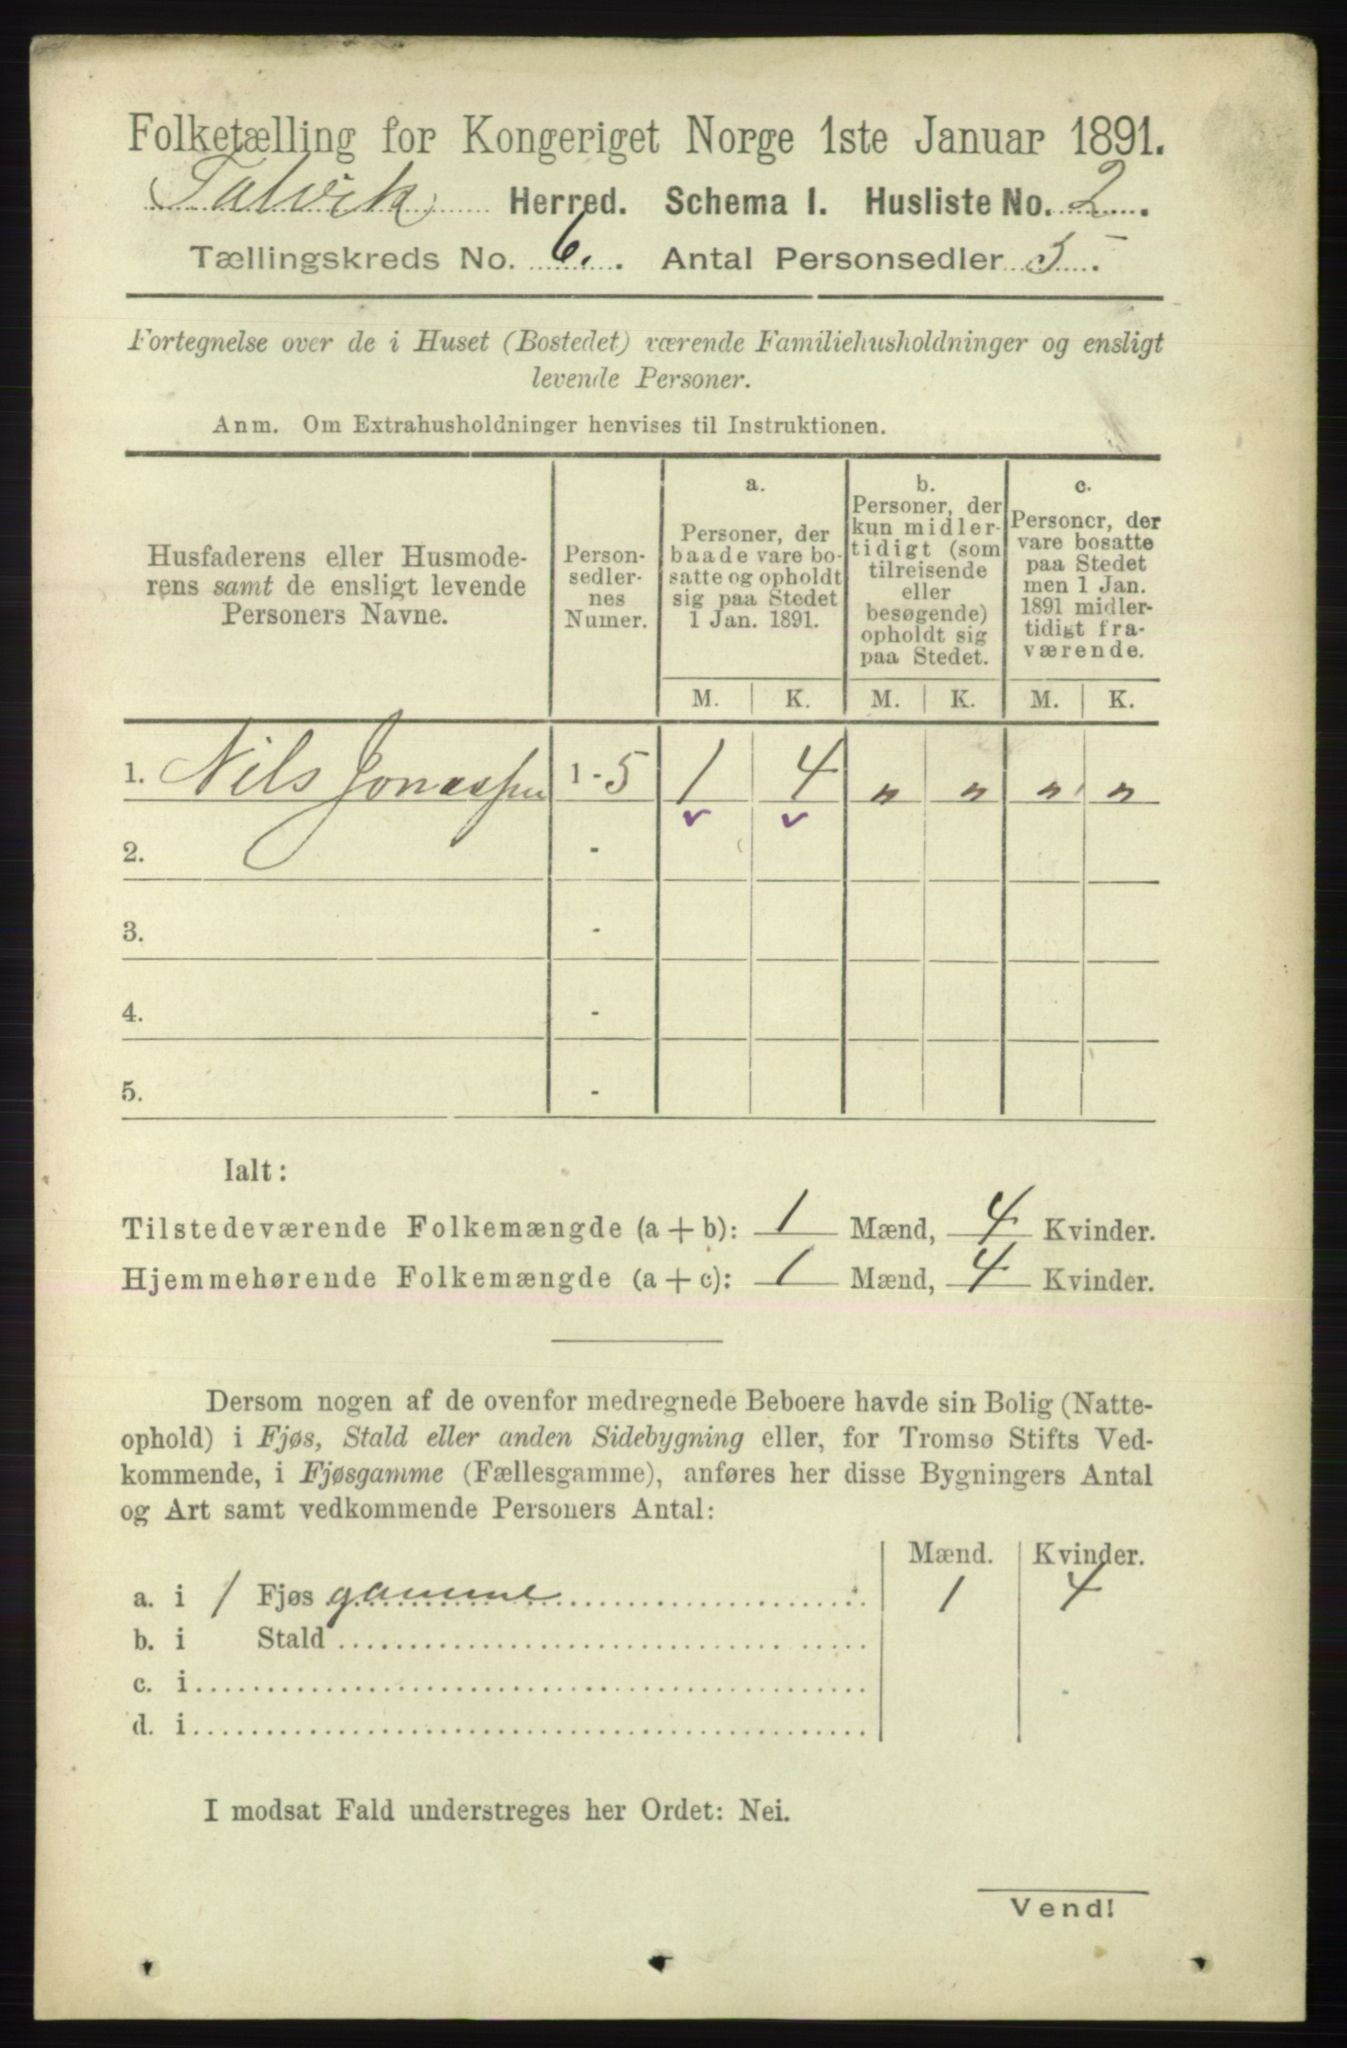 Folketælling for Kongeriget Norge 1ste Januar 1891.
Talvik Herred. Schema I. Husliste No. 2.
Tællingskreds No. 6. Antal Personsedler 5.
Fortegnelse over de i Huset (Bostedet) værende Familiehusholdninger og ensligt
levende Personer.
Anm. Om Extrahusholdninger henvises til Instruktionen.
Husfaderens eller Husmode-
rens samt de ensligt levende
Personers Navne.
Person-
sedler-
nes
Numer.
a.
Personer, der
baade vare bo-
satte og opholdt
sig paa Stedet
1 Jan. 1891.
b.
Personer, der
kun midler-
tidigt (som
tilreisende
eller
besøgende)
opholdt sig
paa Stedet.
c.
Personer, der
vare bosatte
paa Stedet
men 1 Jan.
1891 midler-
tidigt fra-
værende.
M. K. M. K. M. K.
1. Nils Jonassen 1 - 5 1 4 " " " "
2. -
3. -
4. -
5. -
Ialt:
Tilstedeværende Folkemængde (a + b): 1 Mænd, 4 Kvinder.
Hjemmehørende Folkemængde (a + c): 1 Mænd, 4 Kvinder.
Dersom nogen af de ovenfor medregnede Beboere havde sin Bolig (Natte-
ophold) i Fjøs, Stald eller anden Sidebygning eller, for Tromsø Stifts Ved-
kommende, i Fjøsgamme (Fællesgamme), anføres her disse Bygningers Antal
og Art samt vedkommende Personers Antal:
Mænd. Kvinder.
a. i 1 Fjøs gamme 1 4
b. i Stald
c. i
d. i
I modsat Fald understreges her Ordet: Nei.
Vend!